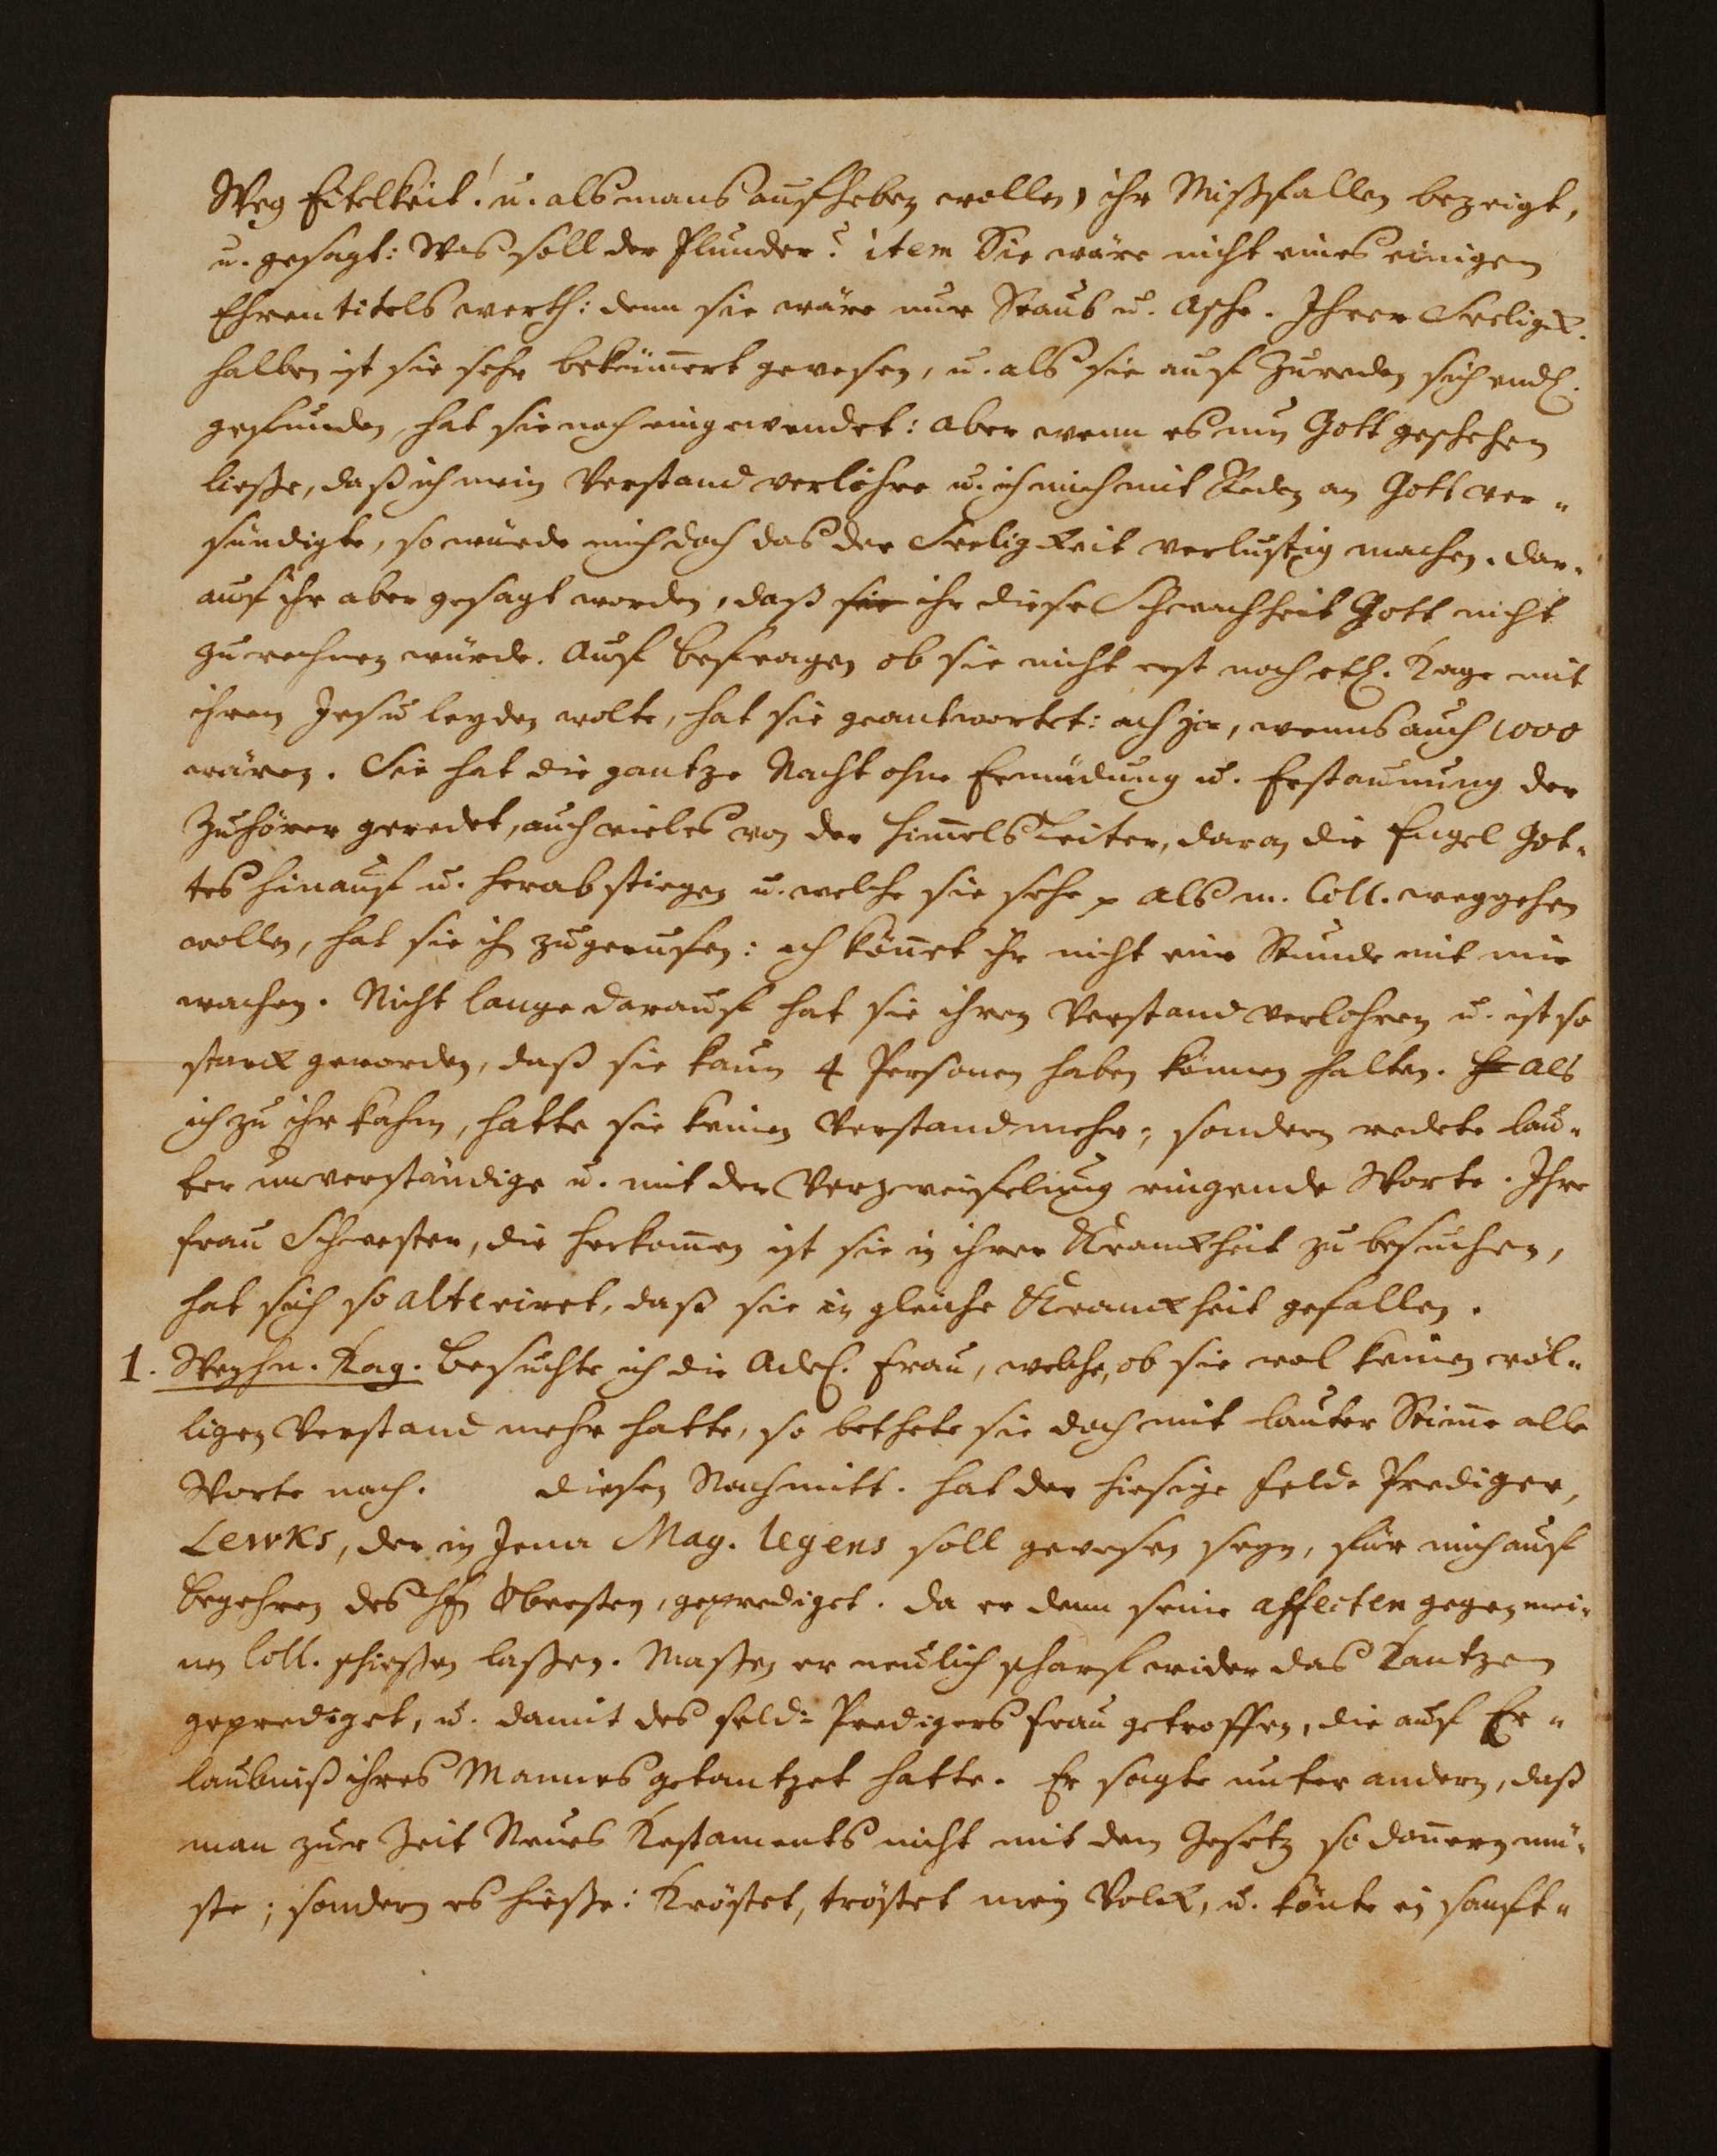 Weg Eitelkeit! u. als mans aufheben wollen, ihr Mißfallen bezeigt,
u. gesagt: Was soll der Plunder? item Sie wäre nicht eines einigen
Ehrentitels werth: denn sie wäre nur Staub u. Asche. Ihrer Seeligk.
halben ist sie sehr bekümert gewesen, u. als sie auf Zureden sich endl.
gefunden, hat sie noch eingewendet: aber wenn es nun Gott geschehen
ließe, daß ich mein Verstand verlöhre u. ich mich mit Reden an Gott ver-
sündigte, so würde mich doch das der Seeligkeit verlustig machen. dar-
auf ihr aber gesagt worden, daß sie ihr diese Schwachheit Gott nicht
zurechnen würde. Auf befragen ob sie nicht erst noch etl. Tage mit
ihrem Jesu leyden wolte, hat sie geantwortet: ach ja, wenns auch 1000
wären. Sie hat die gantze Nacht ohne Ermüdung u. Erstaunung der
Zuhörer geredet, auch vieles von der Himels Leiter, daran die Engel Got-
tes hinauf u. herab stiegen u. welche sie sehe p als m. Coll. weggehen
wollen, hat sie ihm zugerufen: ach könet ihr nicht eine Stunde mit mir
wachen. Nicht lange darauf hat sie ihren Verstand verlohren u. ist so
starck geworden, daß sie kaum 4 Personen haben können halten. als
ich zu ihr kahm, hatte sie keinen Verstand mehr; sondern redete lau-
ter unverständige u. mit der Verzweifelung ringende Worte. Ihre
Frau Schwester, die herkomen ist sie in ihrer Kranckheit zu besuchen,
hat sich so alteriret, daß sie in gleiche Kranckheit gefallen.
1. Weyhn. Tag. besuchte ich die Adel. Frau, welche, ob sie wol keinen völ-
ligen Verstand mehr hatte, so bethete sie doch mit lauter Stime alle
Worte nach. diesen Nachmitt. hat der hiesige Feld-Prediger,
Lewks, der in Jena Mag. legens soll gewesen seyn, für mich auf
begehren des Hn Obersten, geprediget. da er denn seine affecten gegen mei-
nen Coll. schießen laßen. Maßen er neulich scharf wider das Tantzen
geprediget, u. damit des Feld-Predigers Frau getroffen, die auf Er-
laubniß ihres Mannes getantzet hatte. Er sagte unter andern, daß
man zur Zeit Neues Testaments nicht mit dem Gesetz so donern mü-
ste; sondern es hieße: Tröstet, tröstet mein Volck, u. könte ein sanft-